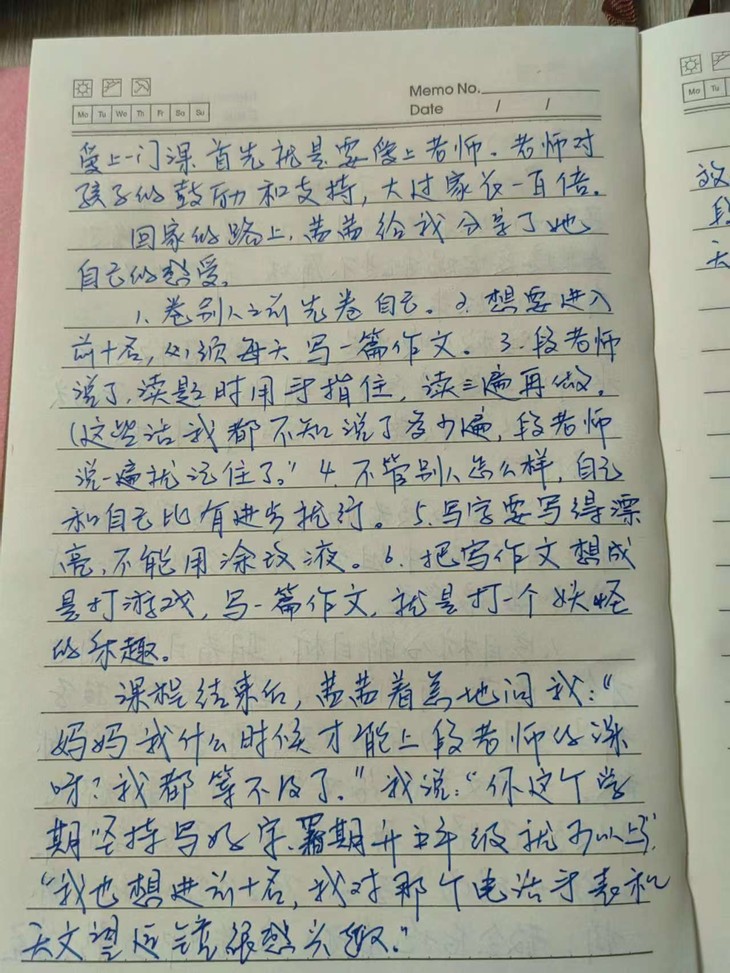 Memo No.
Mo Tu We Th Fr Sa Su
Date / /
爱上一门课首先就是要爱上老师。老师对
孩子的鼓励和支持,大过家长一百倍。
回家的路上,茜茜给我分享了她
自己的感受。
1、卷别人之前先卷自己。2、想要进入
前十名,必须每天写一篇作文。3、段老师
说了,读题时用手指住,读三遍再做。
(这些话我都不知说了多少遍,段老师
说一遍就记住了。" 4、不管别人怎么样,自己
和自己比有进步就行。5、写字要写得漂
亮,不能用涂改液。6、把写作文想成
是打游戏,写一篇作文,就是打一个妖怪
的乐趣。
课程结束后,茜茜着急地问我:"
妈妈我什么时候才能上段老师的课
呀?我都等不及了。"我说:"你这个学
期坚持写好字、暑期升五年级就可以上了"
"我也想进前十名,我对那个电话手表和
天文望远镜很感兴趣。"
Mo Tu
效
段
天